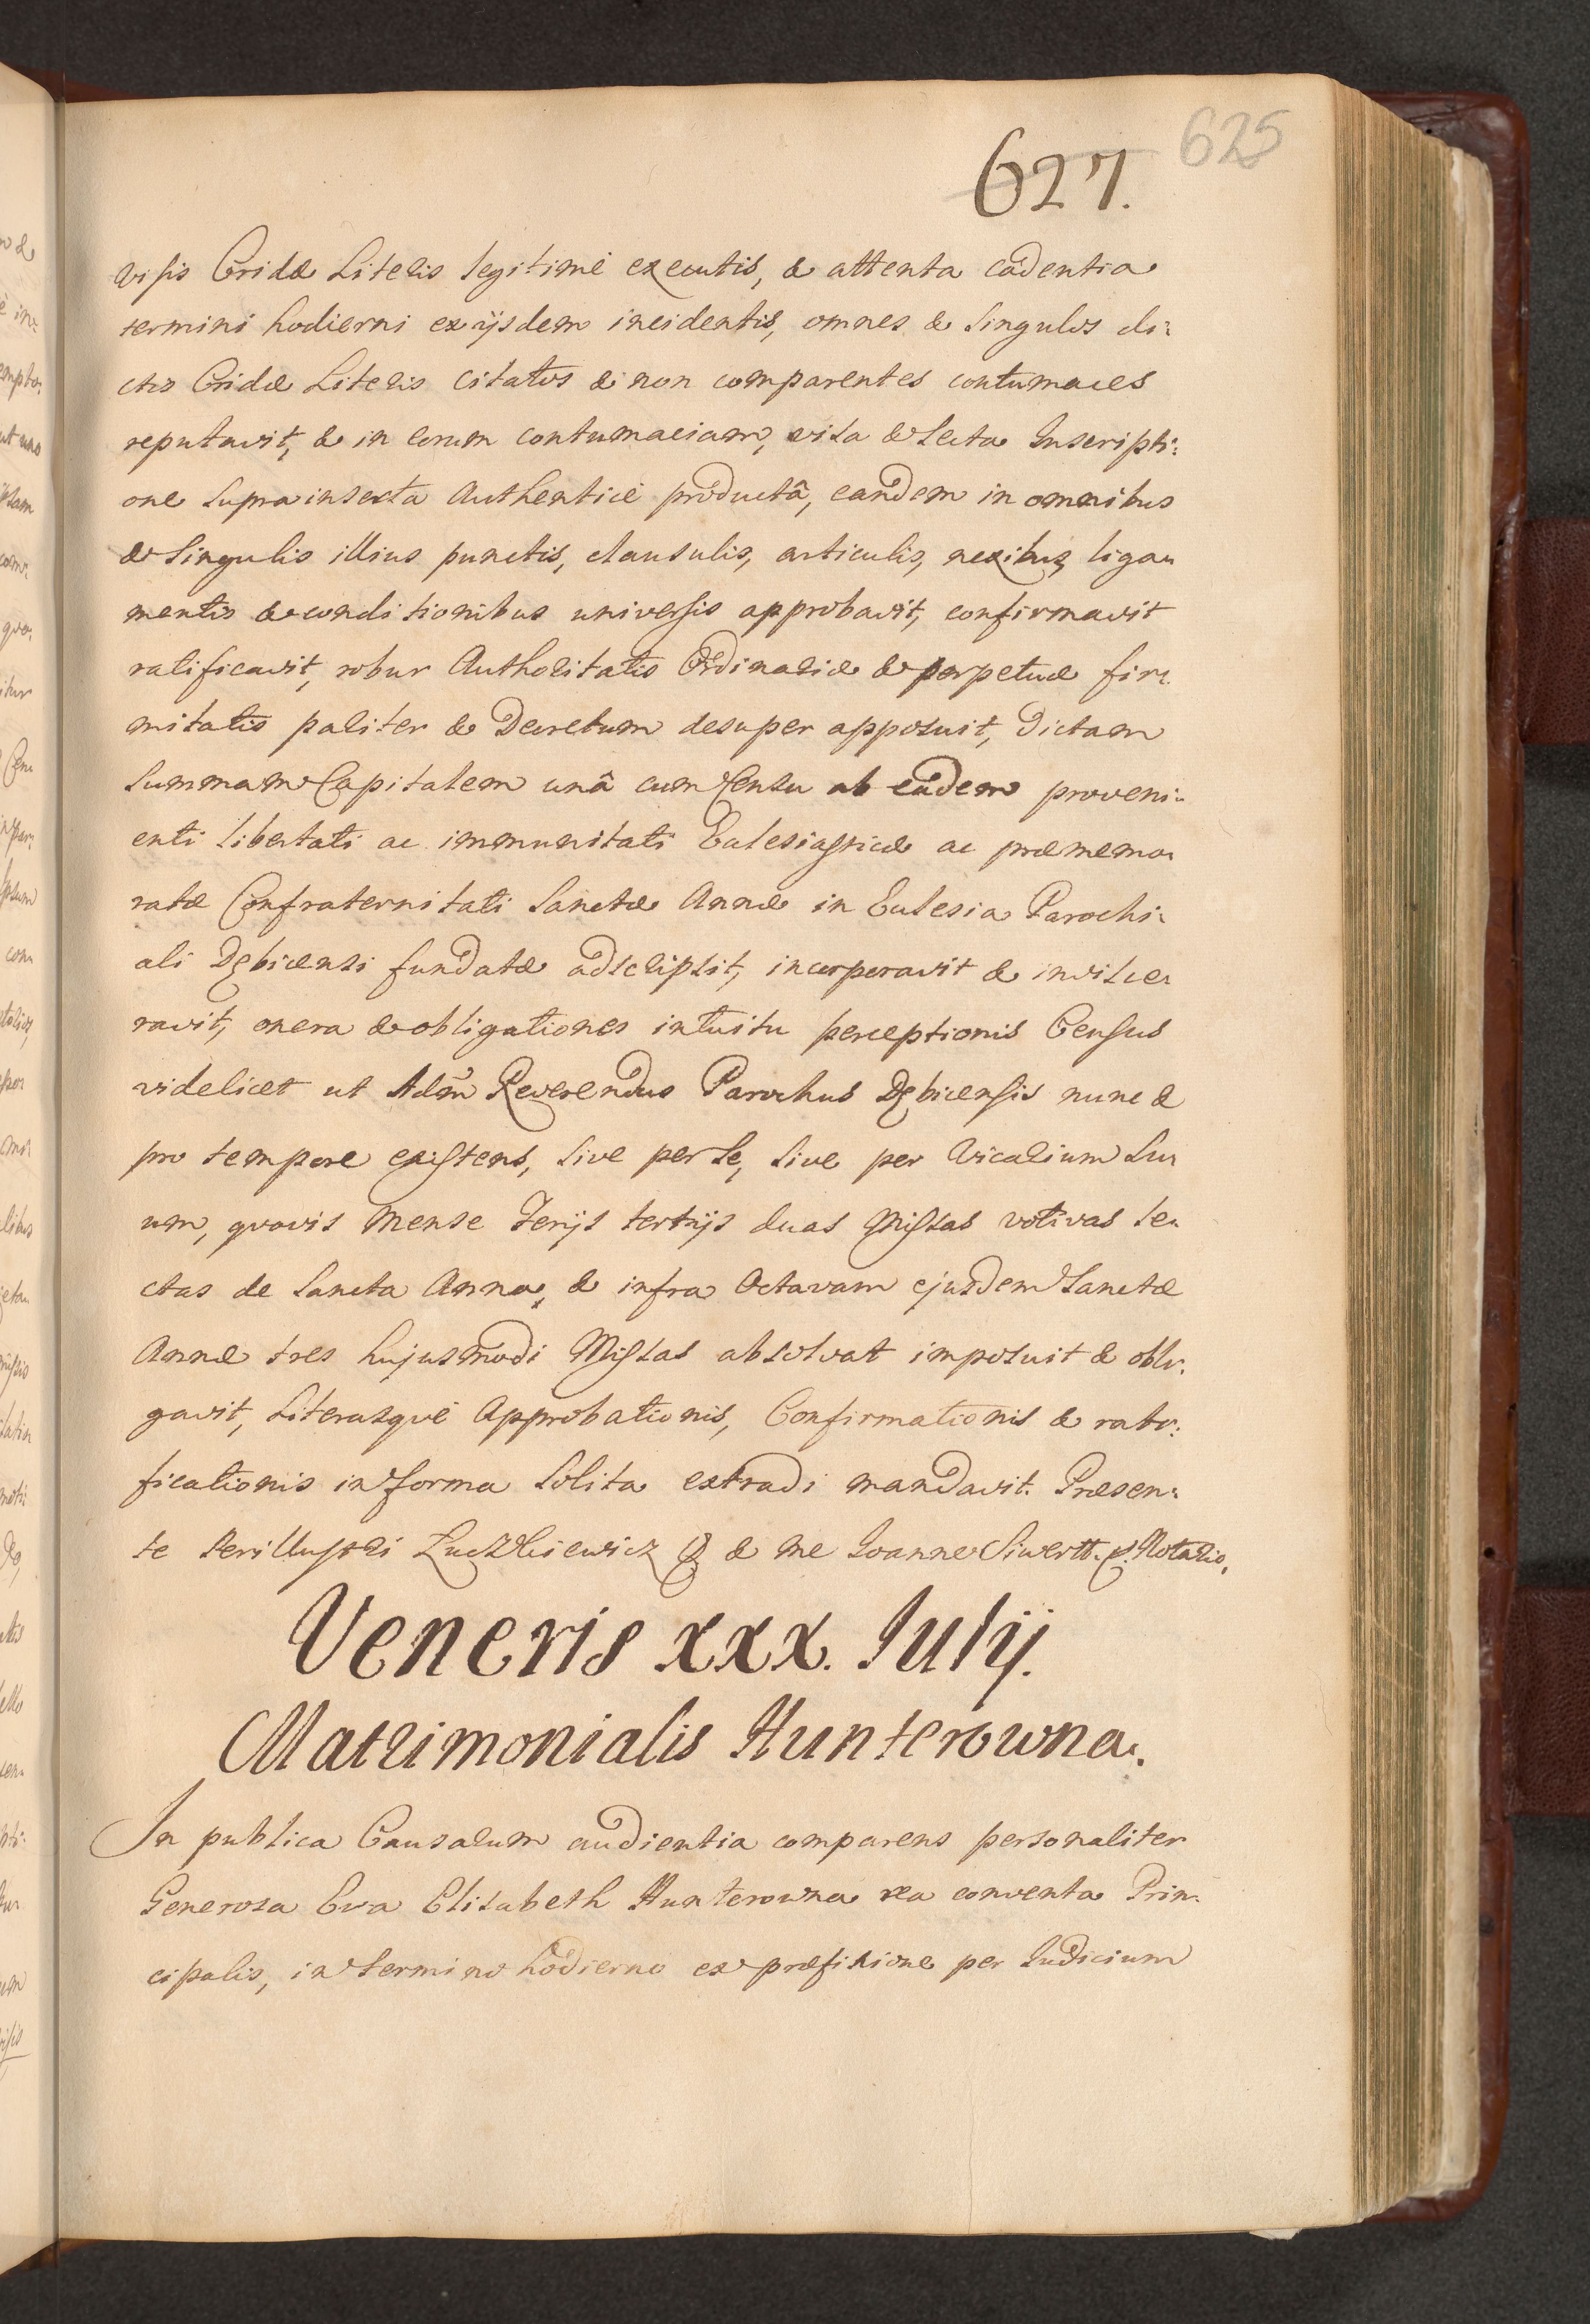 625
627.
visis Cridæ Literis legitimè executis, & attenta cadentia
termini hodierni ex ijsdem incidentis, omnes & singulos di:
ctis Cridæ Literis citatos & non comparentes contumaces
reputavit, & in eorum contumaciam, visa & lecta Inscripti:
one suprainserta Authenticè productâ, eandem in omnibus
& singulis illius punctis, clausulis, articulis, nexibus, liga:
mentis & conditionibus universis approbavit, confirmavit
ratificavit, robur Authoritatis Ordinariæ & perpetuæ fir:
mitatis pariter & Decretum desuper apposuit, Dictam
Summam Capitalem unâ cum Censu ab eadem proveni:
enti libertati ac immunitati Ecclesiasticæ ac præmemo:
ratæ Confraternitati Sanctæ Annæ in Ecclesia Parochi:
ali Dębicensi fundatæ adscripsit, incorporavit & invisce:
ravit, onera & obligationes intuitu perceptionis Census
videlicet ut Adm̃ Reverendus Parochus Dębicensis nunc &
pro tempore existens, sive per se, sive per Vicarium Su:
um, quovis Mense Ferijs tertijs duas Missas votivas le:
ctas de Sancta Anna, & infra Octavam ejusdem Sanctæ
Annæ tres hujusmodi Missas absolvat imposuit & obli:
gavit, Literasquè Approbationis, Confirmationis & rati:
ficationis in forma solita extradi mandavit. Præsen:
te Perillustri Łuczkiewicz & me Joanne Siwertt. p. Notario,
Veneris xxx. Julij.
Matrimonialis Hunterowna.
In publica Causarum audientia comparens personaliter
Generosa Eva Elisabeth Hunterowna rea conventa Prin:
cipalis, in termino hodierno ex præfixione per Judicium